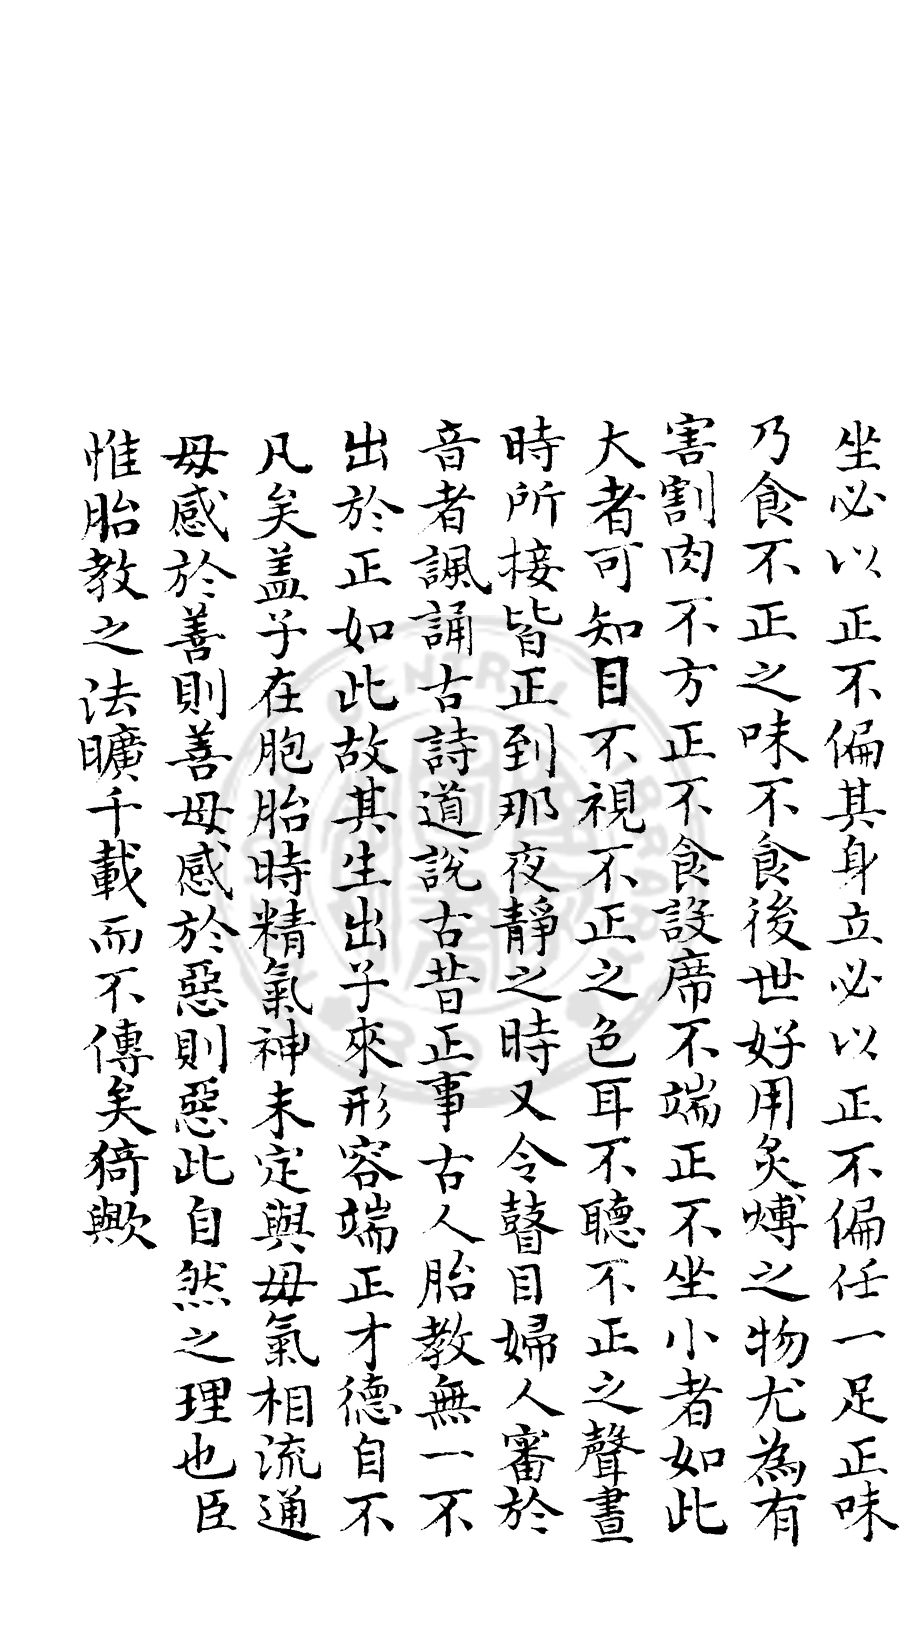 坐必以正不偏其身立必以正不偏任一足正味
乃食不正之味不食後世好用炙煿之物尤為有
害割肉不方正不食設席不端正不坐小者如此
大者可知目不視不正之色耳不聽不正之聲晝
時所接皆正到那夜靜之時又令瞽目婦人審於
音者諷誦古詩道說古昔正事古人胎教無一不
出於正如此故其生出子來形容端正才德自不
凡矣盖子在胞胎時精氣神未定與母氣相流通
母感於善則善母感於惡則惡此自然之理也臣
惟胎教之法曠千載而不傳矣猗歟
CENTRAL LIBRARY